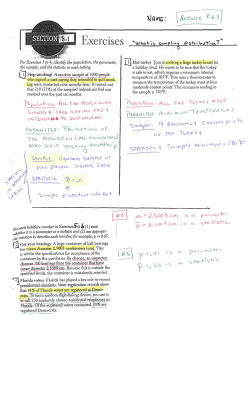 NAME: ANSWER KEY
SECTION 8.1 Exercises "What is sampling distribution?"
For Exercises 1 to 4, identify the population, the parameter,
the sample, and the statistic in each setting.
1. Stop smoking! A random sample of 1000 people
who signed a card saying they intended to quit smoking
were contacted nine months later. It turned out
that 210 (21%) of the sampled individuals had not
smoked over the past six months.
POPULATION: ALL THE PEOPLE WHO
SIGNED A CARD SAYING THEY
INTENDED TO QUIT SMOKING
PARAMETER: PROPORTION OF
THE POPULATION
WHO QUIT SMOKING
SAMPLE: RANDOM SAMPLE OF
1000 PEOPLE
STATISTIC
Sample proportion
Hot turkey Tom is cooking a large turkey breast for
a holiday meal. He wants to be sure that the turkey
is safe to eat, which requires a minimum internal
temperature of 165°F. Tom uses a thermometer to
measure the temperature of the turkey meat at four
randomly chosen points. The minimum reading in
the sample is 170°F.
POPULATION: ALL THE TURKEY MEAT
PARAMETER: MINIMUM TEMPERATURE
SAMPLE: 4 RANDOMLY CHOSEN POINTS
OF THE TURKEY
STATISTIC: Sample minimum = 170°F
For each boldface number in Exercises 5 to 8, (1) state
whether it is a parameter or a statistic and (2) use appropriate
notation to describe each number; for example, p = 0.65.
5. Get your bearings A large container of ball bearings
has mean diameter 2.5003 centimeters (cm). This
is within the specifications for acceptance of the
container by the purchaser. By chance, an inspector
chooses 100 bearings from the container that have
mean diameter 2.5009 cm. Because this is outside the
specified limits, the container is mistakenly rejected.
6. Florida voters Florida has played a key role in recent
presidential elections. Voter registration records show
that 41% of Florida voters are registered as Democrats.
To test a random digit dialing device, you use it
to call 250 randomly chosen residential telephones in
Florida. Of the registered voters contacted, 33% are
registered Democrats.
#5 μ = 2.5003 cm is a parameter
x̄ = 2.5009 cm is a statistic
#6 p = .41 is a parameter
p̂ = .33 is a statistic